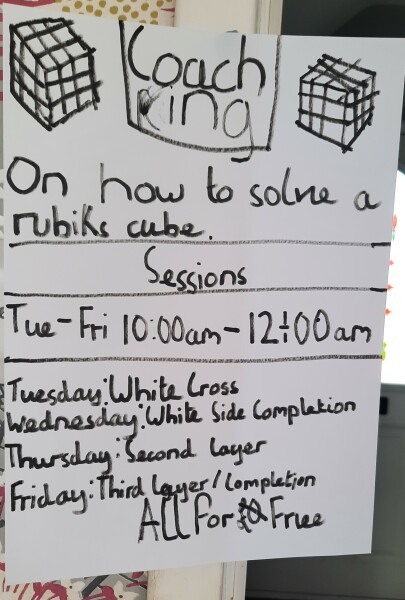 Coach
King
On how to solve a
rubiks cube.
Sessions
Tue-Fri 10:00am-12:00am
Tuesday: White Cross
Wednesday: White Side Completion
Thursday: Second Layer
Friday: Third Layer/Completion
All for Free